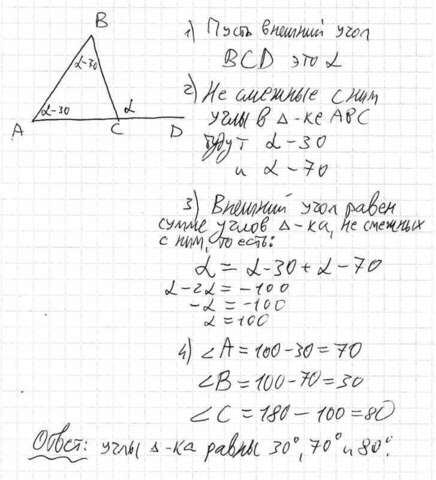 B
α-30
α-30
α
A
C
D
1) Пусть внешний угол
BCD это α
2) Не смежные с ним
углы в Δ-ке ABC
будут α-30
и α-70
3) Внешний угол равен
сумме углов Δ-ка, не смежных
с ним, то есть:
α = α-30+α-70
α-2α = -100
-α = -100
α = 100
4) ∠A = 100-30 = 70
∠B = 100-70 = 30
∠C = 180 - 100 = 80
Ответ: углы Δ-ка равны 30°, 70° и 80°.